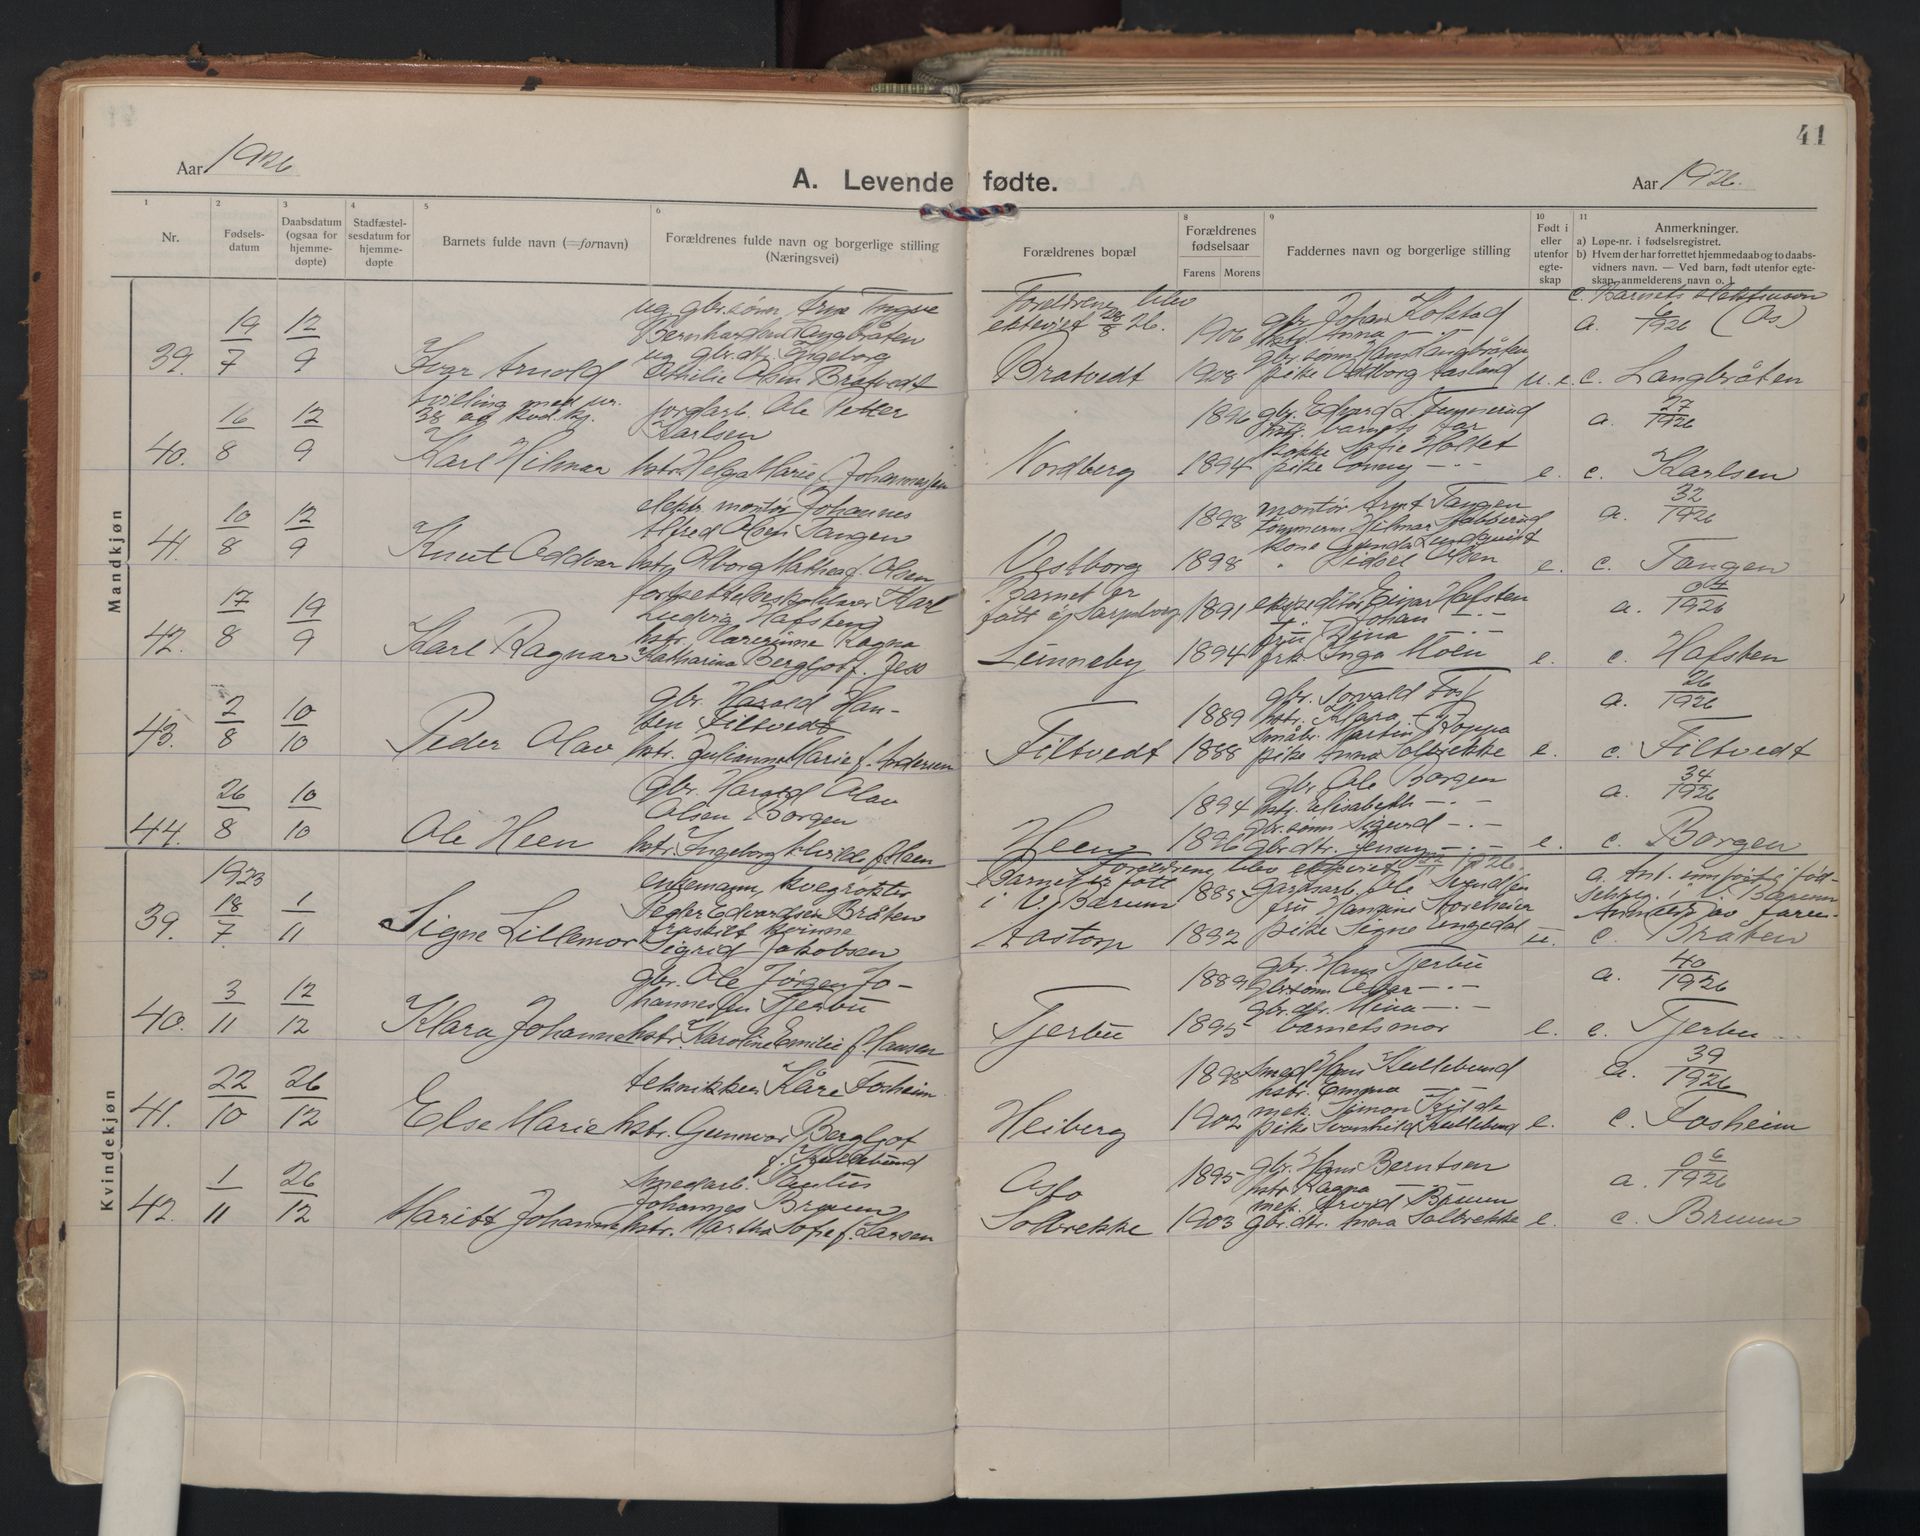 41
Aar 1926
A. Levende fødte.
Aar 1926.
1 2 3 4 5 6 8 9 10 11
Nr.
Fødsels-
datum
Daabsdatum
(ogsaa for
hjemme-
døpte)
Stadfæstel-
sesdatum for
hjemme-
døpte
Barnets fulde navn (=fornavn)
Forældrenes fulde navn og borgerlige stilling
(Næringsvei)
Forældrenes bopæl
Forældrenes
fødselsaar
Farens Morens
Faddernes navn og borgerlige stilling
Født i
eller
utenfor
egte-
skap
Anmerkninger.
a) Løpe-nr. i fødselsregistret.
b) Hvem der har forrettet hjemmedaab og to daabs-
vidners navn. — Ved barn, født utenfor egte-
skap, anmelderens navn o.
Mandkjøn
39. 19/7 12/9
Ivar Arnold
ug. gbr.sønn Arne Trygve
Bernhardsen Langbråten
ug. gbr.dtr. Ingeborg
Othilie Olsen Bratvedt
Foreldrene blev
ektevigt 28/8 26.
Bratvedt
1906
1908
gbr. Johan Kolstad
hstr. Anna — " —
gbr. sønn Hans Langbråten
pike Oddborg Aasland
u.e.
a. 6/1926 (Ås)
c. Langbråten
40. 16/8 12/9
Tvilling med nr.
38 av kvd.kj.
Karl Hilmar
jordarb. Ole Petter
Karlsen
hstr. Helga Marie f. Johannessen
Nordberg
1896
1894
barnets far
kokke Sofie Holtet
pike Conny — " —
e.
a. 27/1926
c. Karlsen
41. 10/8 12/9
Knut Oddvar
elektr. montør Johannes
Alfred Olsen Tangen
hstr. Olborg Mathea f. Olsen
Vestborg
1898
1898
montør Arnt Tangen
tømmerm. Hilmar Stabberud
kone Gunda Lundquist
" Lidsel Olsen
e.
a. 32/1926
c. Tangen
42. 17/8 19/9
Karl Ragnar
Karl
Ludvig Hafsten
hstr. Ragna
Katharina Bergljot f. Jess
Barnet er
født i Sarpsborg
Linneby
1891
1894
ekspeditør Einar Hafsten
" Johan — " —
fru Dina — " —
frk. Inga Moen
e.
a. 04/1926
c. Hafsten
43. 2/8 10/10
Peder Olav
gbr. Harald Han-
sen Filtvedt
hstr. Julianne Marie f. Andersen
Filtvedt
1889
1888
gbr. Torvald Foss
hstr. Klara — " —
småbr. Martin Roppa
pike Anna Solbrekke
e.
a. 26/1926
c. Filtvedt
44. 26/8 10/10
Ole Heen
gbr. Harald Olav
Olsen Borgen
hstr. Ingeborg Alvilde f. Heen
Heen
1894
1896
gbr. Ole Borgen
hstr. Elisabeth — " —
gbr. sønn Sigurd — " —
gbr. dtr. Jenny — " —
e.
a. 34/1926
c. Borgen
Kvindekjøn
39. 1923 18/7 1/11
Signe Lillemor
enkemann, kvegrøkter
Peder Edvardsen Bråten
fraskilt kvinne
Sigrid Jakobsen
Foreldrene blev ektevied 1926.
Barnet er født
i V. Bærum
Aastorp
1885
1892
gårdsarb. Pele Svendsen
fru Mangine Storeheier
pike Signe Lengedal
u.
a. Ant. innført i fød-
selsreg. i V. Bærum
Anmeldt av faren
c. Bråten
40. 3/11 12/12
Klara Johanne
gbr. Ole Jørgen Jo-
hannessen Tjerbu
hstr. Karoline Emilie f. Hansen
Tjerbu
1889
1895
gbr. Hans Tjerbu
gbr. sønn Oskar — " —
gbr. dtr. Mina — " —
barnets mor
e.
a. 40/1926
c. Tjerbu
41. 22/10 26/12
Else Marie
tekniker Kåre Fosheim
hstr. Gunnvor Bergljot
f. Kullebund
Heiberg
1898
1902
smed Hans Kullebund
hstr. Emma — " —
mek. Simon Fjilde
pike Svanhild Kullebund
e.
a. 39/1926
c. Fosheim
42. 1/11 26/12
Maritt Johanne
smedarb. Paulus
Johannes Bruun
hstr. Martha Sofie f. Larsen
Solbrekke
1895
1903
gbr. Hans Berntsen
hstr. Ragna —
mek. Arvid Bruun
gbr. dtr. Anna Solbrekke
e.
a. 06/1926
c. Bruun